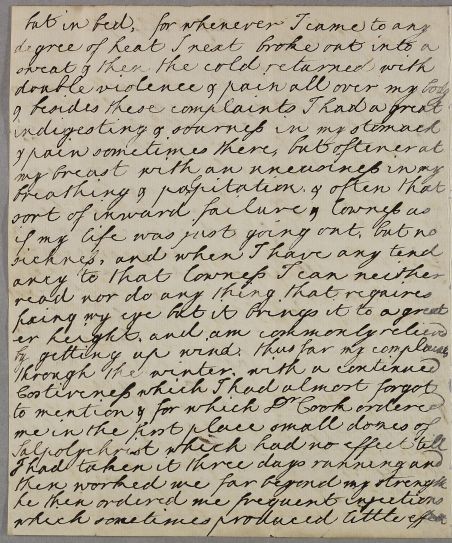 but in bed, for whenever I came to any
degree of heat I next broke out into a
sweat & then the cold returned with
double violence & pain all over my body
& besides these complaints I had a great
indigesting & sourness in my stomach
& pain sometimes there, but oftener at
my breast with an uneasiness in my
breathing & palpitation & often that
sort of inward failure & lowness as
if my life was just going out, but no
sickness, and when I have any tend
ancy to that lowness I can neither
read nor do any thing that requires
fixing my eye but it brings it to a great
er height, and am commonly relieved
by getting up wind, thus far my complaints
through the winter, with a continued
Costiveness which I had almost forgot
to mention & for which Dr Cook ordered
me in the first place small doses of
Salpolychrist which had no effect till
I had taken it three days running and
then worked me far beyond my strength
he then ordered me frequent injections
which sometimes produced little effect